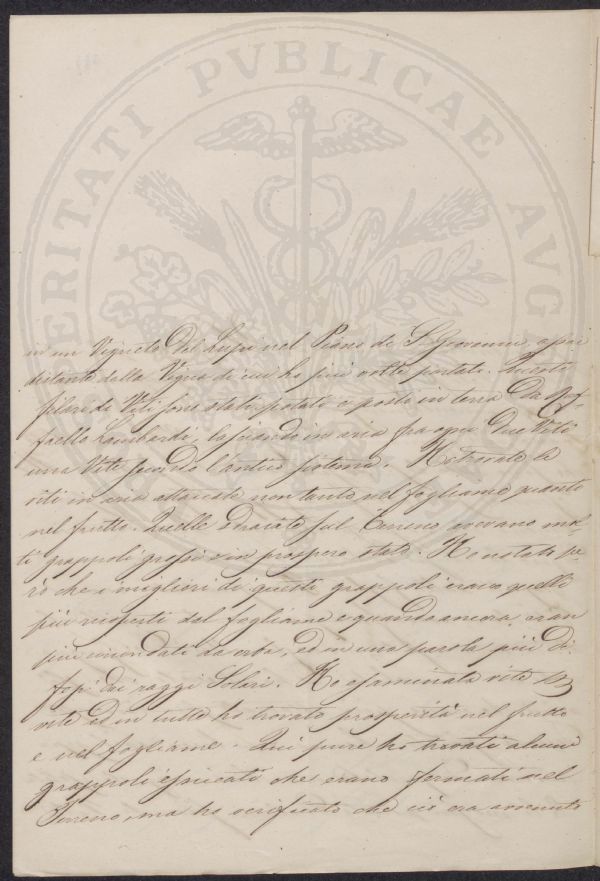 VERITATI PVBLICAE AVG
in un Vigneto del Lupi nel Piano di S. Giovanni, e poco
distante dalla Vigna di cui ho più volte parlato. Queste
filari di Viti sono stati potati e posti in terra da Raf-
faello Lombardi, lasciando in aria fra ogni due Viti
una Vite secondo l'antico sistema. Ho trovato le
viti in aria attaccate non tanto nel fogliame quanto
nel frutto. Quelle sdraiate sul terreno avevano mol-
ti grappoli grossi e in prospero stato. Ho notato pe-
rò che i migliori di questi grappoli erano quelli
più ricoperti dal fogliame e quando ancora eran
più circondati da erba, ed in una parola più di-
fesi dai raggi Solari. Ho esaminata vite per
vite ed in tutte ho trovato prosperità nel frutto
e nel fogliame. Qui pure ho trovati alcuni
grappoli che erano fermati nel
Terreno, ma ho verificato che ciò era avvenuto